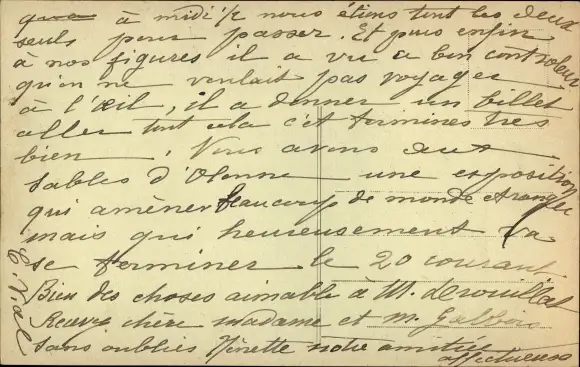 à midi ½ nous étions tout les deux
seuls pour passer. Et puis enfin
à nos figures il a vu ce bon controleur
qu'on ne voulait pas voyager
à l'œil, il a donner un billet
aller tout cela c'et terminés très
bien. Nous avons aux
Sables d'Olonne une exposition
qui amèner beaucoup de monde etranger
mais qui heureusement va
se terminer le 20 courant
Bien des choses aimable à M.
Recevez chère madame et M.
sans oublier Ninette notre amitié
affectueuse